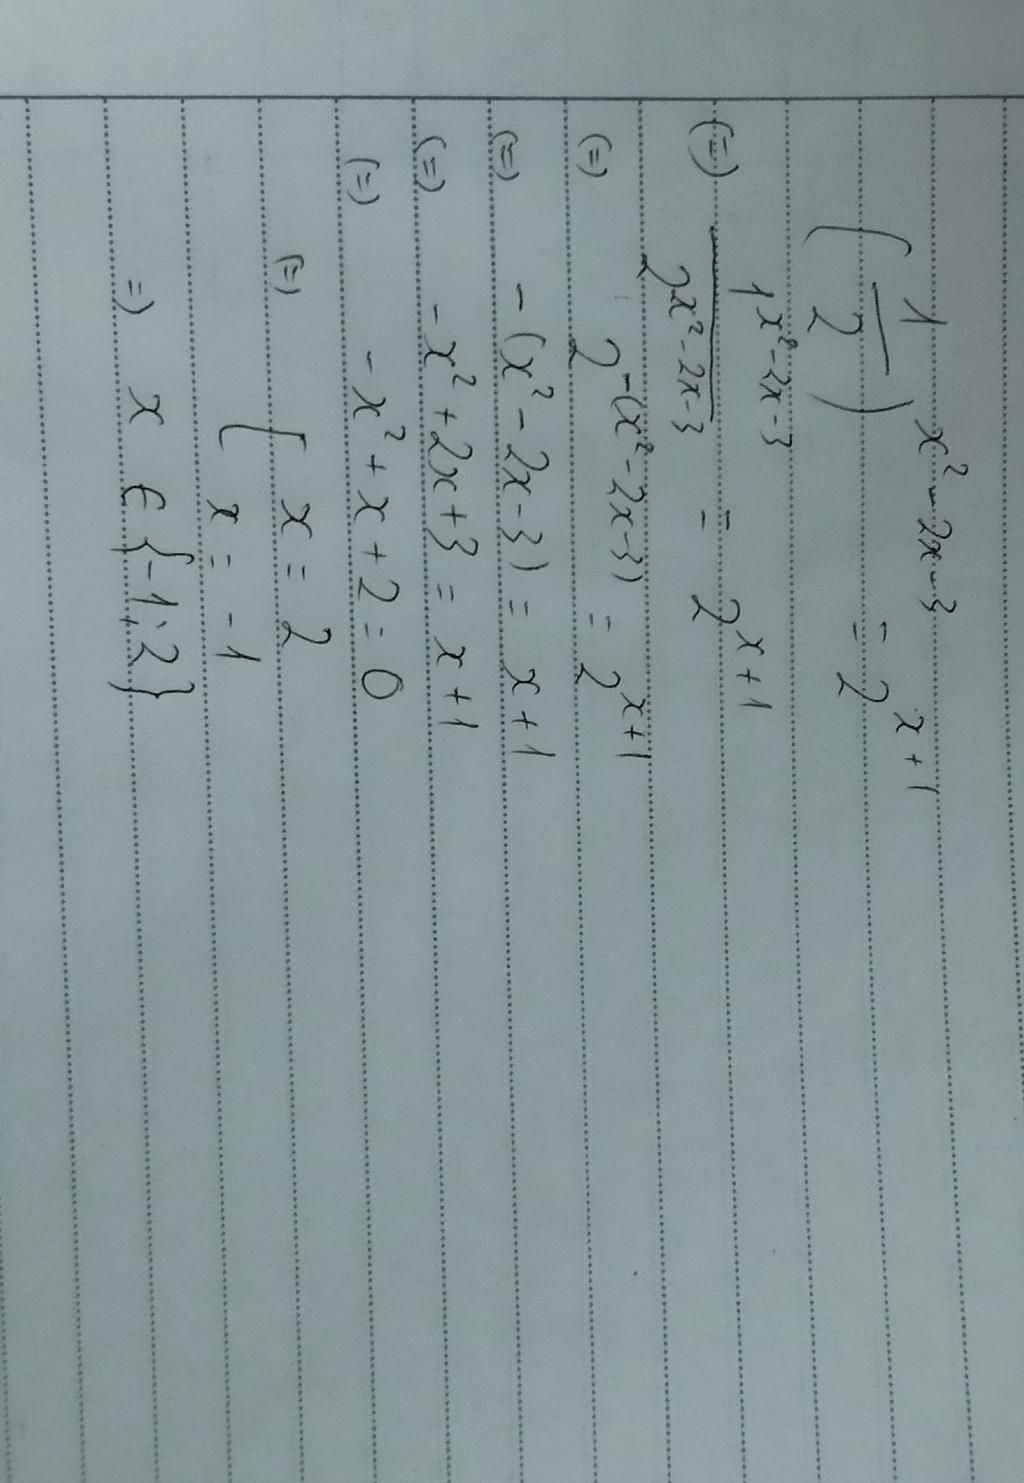 (1/2)^(x² - 2x - 3) = 2^(x + 1)
(=) 1^(x² - 2x - 3) / 2^(x² - 2x - 3) = 2^(x + 1)
(=) 2^(-(x² - 2x - 3)) = 2^(x + 1)
(=) - (x² - 2x - 3) = x + 1
(=) - x² + 2x + 3 = x + 1
(=) - x² + x + 2 = 0
(=) [ x = 2
x = - 1
=) x ∈ {-1; 2}